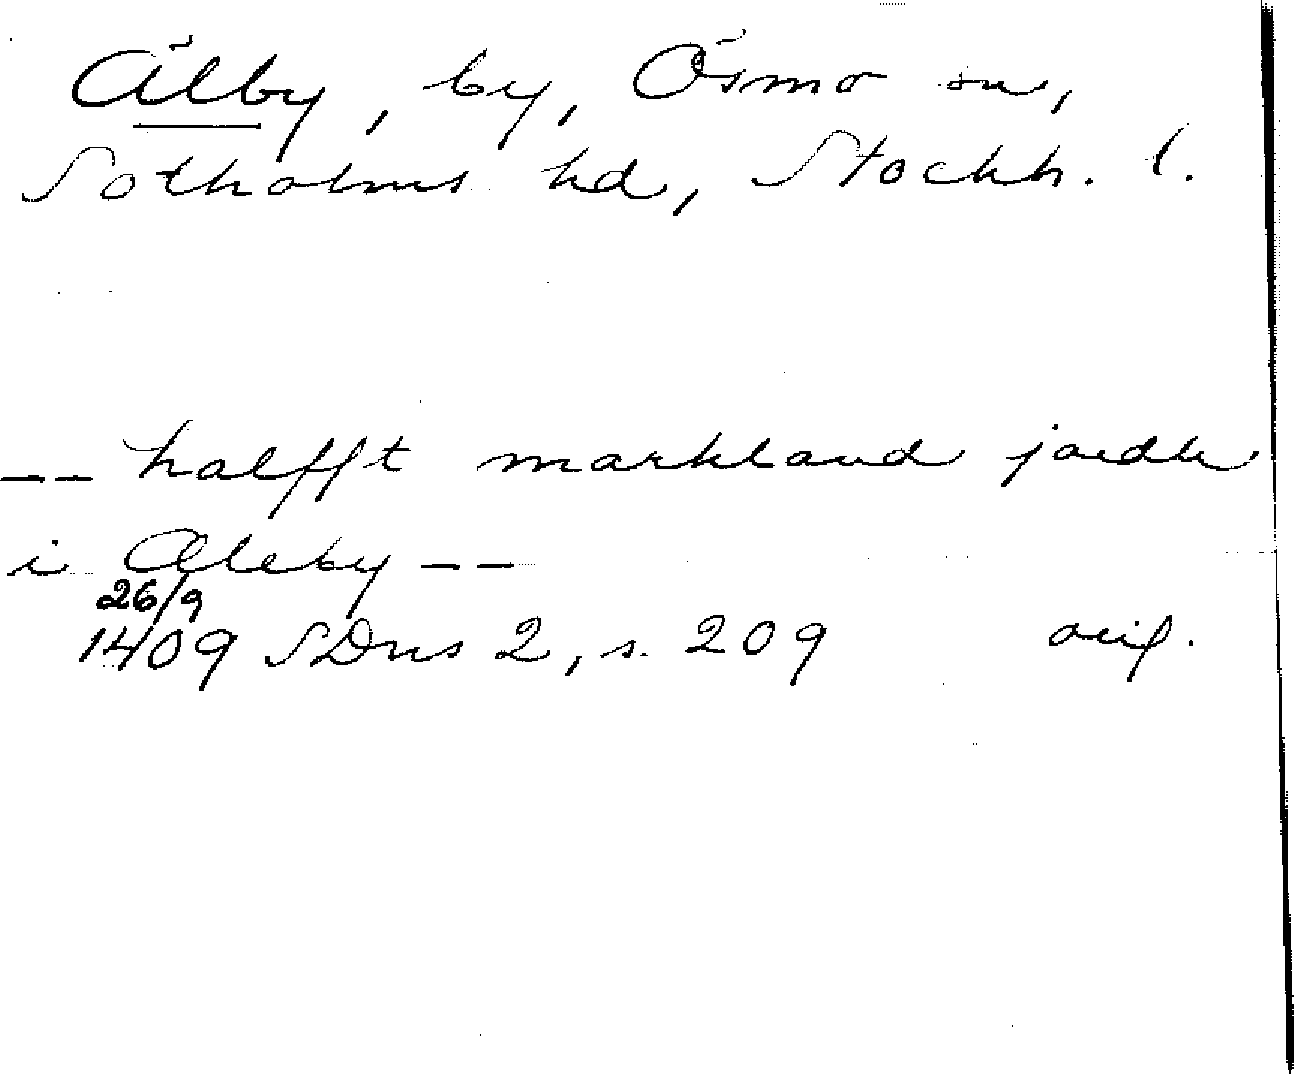 Älby, by, Ösmo sn,
Sotholms hd, Stockh. l.
-- halfft markland jordh
i Æleby --
26/9
1409 SDns 2, s. 209 orig.